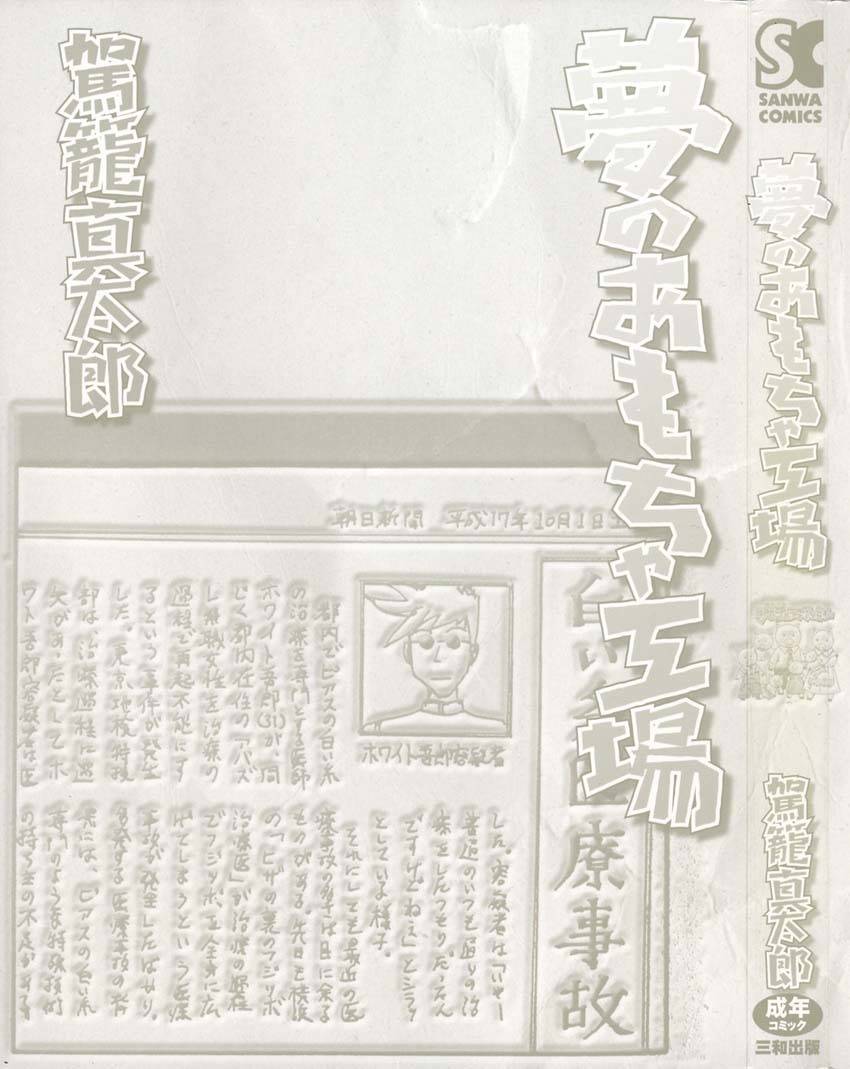 SC
SANWA
COMICS
夢のおもちゃ工場
駕籠真太郎
成年
コミック
三和出版
夢のおもちゃ工場
駕籠真太郎
朝日新聞 平成17年10月1日土
白い糸医療事故
ホワイト吾郎容疑者
都内でピアスの白い糸
の治療を専門とする医師
ホワイト吾郎(31)が、同
じく都内在住のアパズ
し無職女性を治療の
過程で再起不能にす
るという事件が発生
した。東京地検特捜
部は、治療過程に過
失があったとしてホ
ワイト吾郎容疑者は医
した。容疑者は「いやー
普通のいつも通りの治
療をしたつもりだったん
ですけどねえ」とシラッ
としている様子。
それにしても最近の医
療事故の多さは目に余る
ものがある。先日も横浜
の「ヒザの裏のフジツボ
治療医」が治療の過程
でフジツボを全身に広
げてしまうという医療
事故が発生したばかり。
多発する医療事故の背
景には、ピアスの白い糸
専門のような特殊技術
の持ち主の不足がある